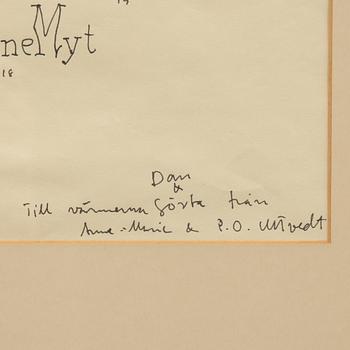 19
neMyt
18
Dan
&
Till vännerna Gösta från
Anna-Maria & P.O. Ultvedt